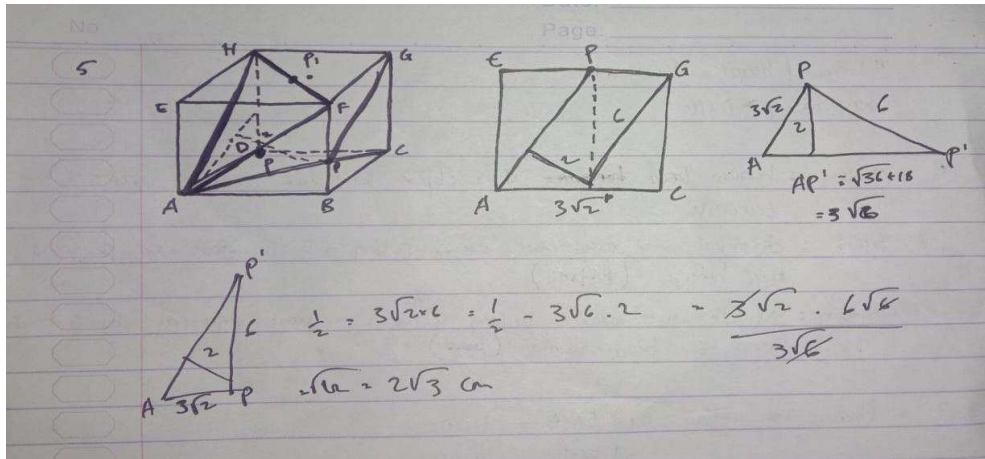 No
Date:
Page:
5
H
G
P'
E
F
D
P
P
C
A
B
E
P
G
6
2
A
3√2
P
C
P
3√2
6
2
A
P'
AP' = √36+18
= 3√6
P'
6
2
A
3√2
P
1/2 = 3√2×6 = 1/2 - 3√6 . 2 = 3√2 . 6√6 / 3√6
= √12 = 2√3 cm